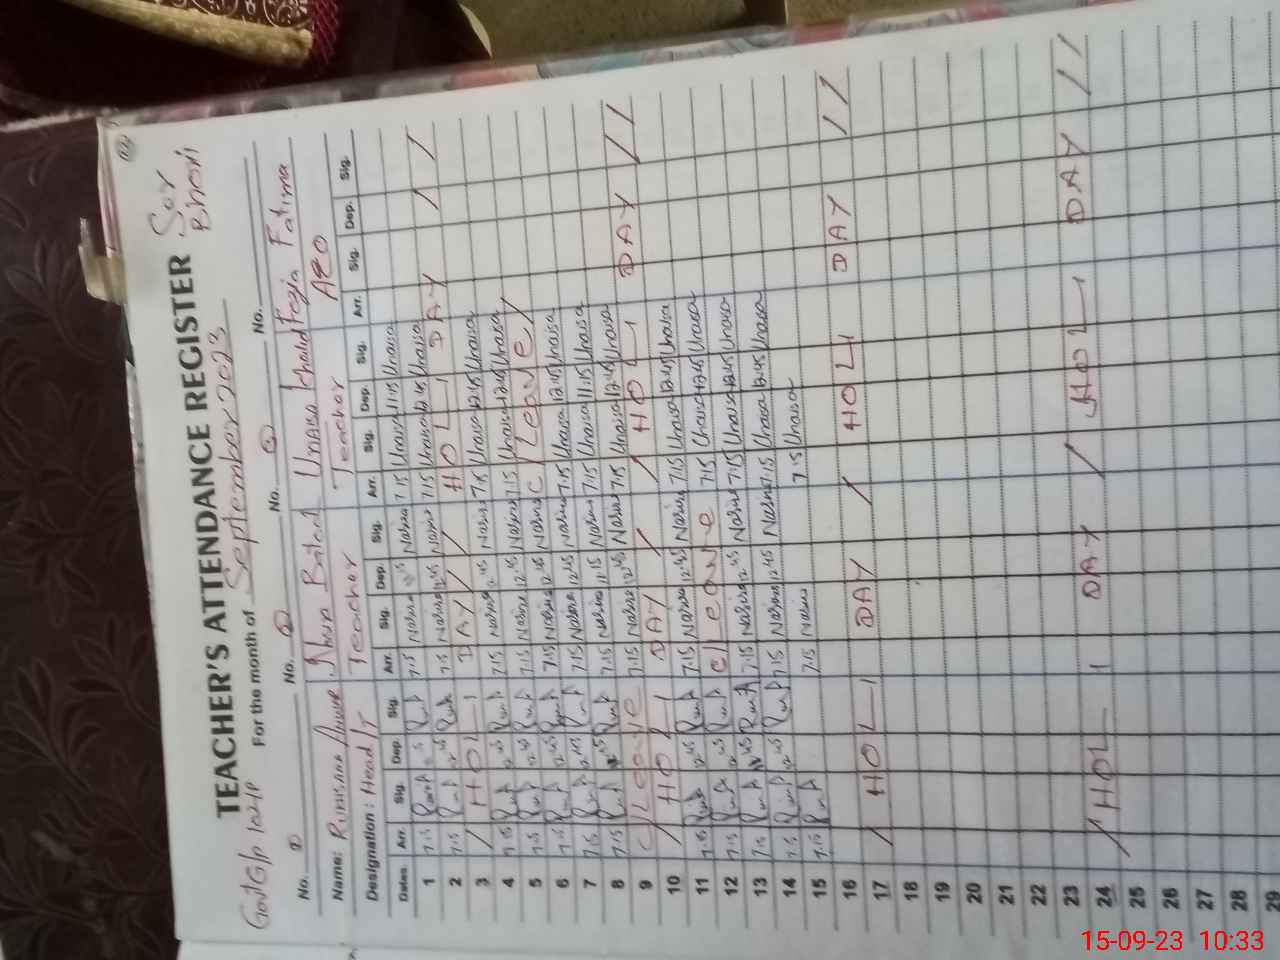 TEACHER'S ATTENDANCE REGISTER
Sor
Govt G/P For the month of September 2023 Bhoni
No. ① No. ② No. ③ No.
Name: Rukhsana Batool Unaisa Khalid Fozia Fatima
Designation: Head/T Teacher Teacher
Dates Arr. Sig. Dep. Sig. Arr. Sig. Dep. Sig. Arr. Sig. Dep. Sig. Arr. Sig. Dep. Sig.
1 7:15 7:15 Nasira Nasira 7:15 Unaisa 11:15 Unaisa
2 7:15 12:45 7:15 Nasira 12:45 Nasira 7:15 Unaisa 12:45 Unaisa / /
3 / HOLI DAY / HOLI DAY
4 7:15 12:45 7:15 Nasira 12:45 Nasira 7:15 Unaisa 12:45 Unaisa
5 7:15 12:45 7:15 Nasira 12:45 Nasira 7:15 Unaisa 12:45 Unaisa
6 7:15 12:45 7:15 Nasira 12:45 Nasira C/Leave
7 7:15 12:45 7:15 Nasira 12:45 Nasira 7:15 Unaisa 12:45 Unaisa
8 7:15 12:45 7:15 Nasira 11:15 Nasira 7:15 Unaisa 11:15 Unaisa
9 C/Leave 7:15 Nasira 12:45 Nasira 7:15 Unaisa 12:45 Unaisa
10 / HOLI DAY / HOLI DAY / /
11 7:15 12:45 7:15 Nasira 12:45 Nasira 7:15 Unaisa 12:45 Unaisa
12 7:15 12:45 C/Leave 7:15 Unaisa 12:45 Unaisa
13 7:15 12:45 7:15 Nasira 12:45 Nasira 7:15 Unaisa 12:45 Unaisa
14 7:15 12:45 7:15 Nasira 12:45 Nasira 7:15 Unaisa 12:45 Unaisa
15 7:15 7:15 Nasira 7:15 Unaisa
16
17 / HOLI DAY / HOLI DAY / /
18
19
20
21
22
23
24 / HOLI DAY / HOLI DAY / /
25
26
27
28
29
15-09-23 10:33